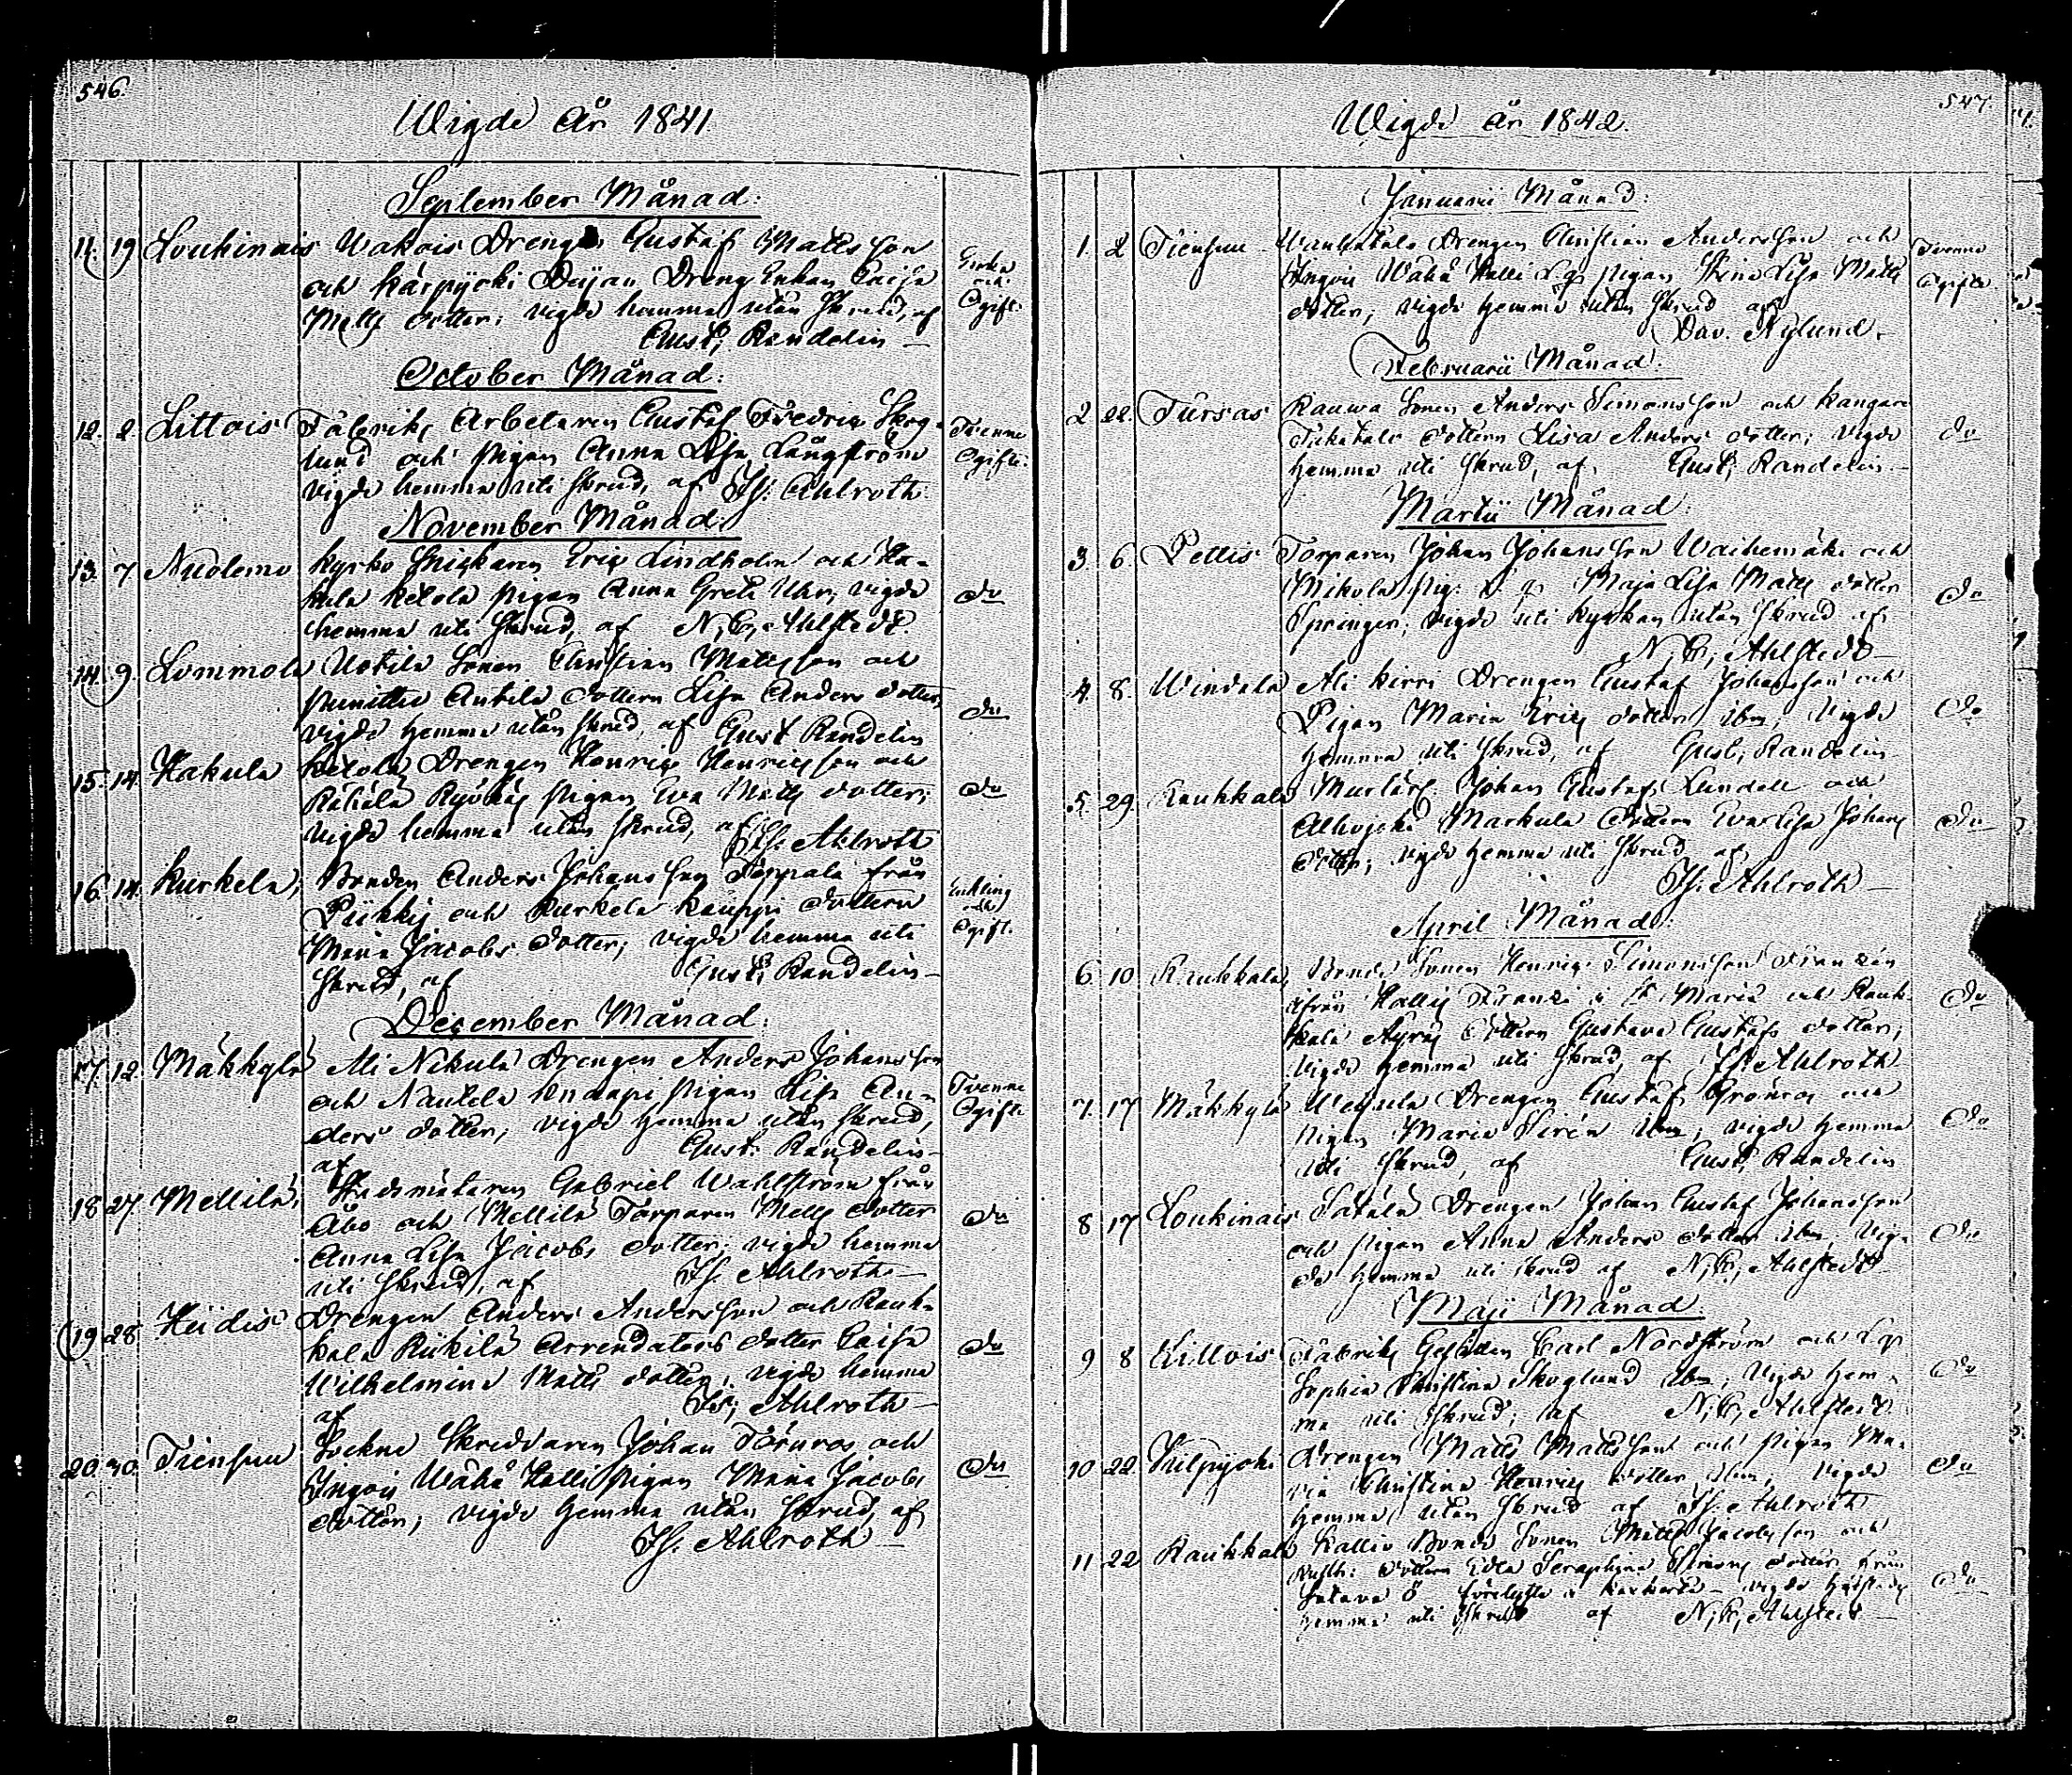 546.
Wigde År 1841.
September Månad:
11. 19 Loukinais Wakois Drengen Gustaf Matts son
och Karpijoki Dreng Enkan Caisa
Matts dotter; vigde hemma utan skrud, af
Gust; Randelin
Enka
och
Ogift.
October Månad:
12. 2 Littois Fabriks Arbetaren Gustaf Fredric Skog-
lund och pigan Anna Lisa Långström
vigde hemma uti skrud, af Is: Ahlroth.
Tvenne
Ogifte.
November Månad:
13. 7 Nuolemo Kyrko Snickaren Eric Lindholm och Ha-
kula Ketola pigan Anna Greta vigde
hemma uti skrud, af N; G; Ahlstedt.
do
14. 9. Lommola Uotila Sonen Christian Mattsson och
Anttila dottern Lisa Anders dotter,
vigde hemma utan skrud, af Gust Randelin
do
15. 14. Hakula Ketola Drengen Henric Henricsson och
pigan Eva Matts dotter;
vigde hemma utan skrud, af Is. Ahlroth
do
16. 14. Kurkela, Bonden Anders Johansson från
Piikkis och Kurkela Kauppi dottern
Maria Jacobs dotter; vigde hemma uti
skrud, af Gust; Randelin
Enkling
och
Ogift.
December Månad:
17. 12. Mäkkylä Ali Nikula Drengen Anders Johansson
och Nautela Knaapi pigan Lisa An-
ders dotter; vigde hemma utan skrud,
af Gust: Randelin
Tvenne
Ogifte
18 27. Mellilä, Gabriel Wahlström från
Åbo och Mellilä Torparen Matts dotter
Anna Lisa Jacobs dotter; vigde hemma
uti skrud, af Is. Ahlroth
do
19 28 Heidis Drengen Anders Andersson och Rauk-
kala Riikilä Arrendators dotter Caisa
Wilhelmina Matts dotter, vigde hemma
af Is; Ahlroth
do
20. 30. Tiensuu Sockne Skreddaren Johan Törnros och
Ingois Wähä Halli pigan Maria Jacobs
dotter; vigde hemma utan skrud, af
Is. Ahlroth
do
547.
Wigde år 1842.
Januarii Månad:
1. 2 Tiensuu Wanhatalo Drengen Christian Andersson och
Ingois Wähä Halli pigan Stina Lisa Matts
dotter; vigde hemma utan skrud af
Dav. Nylund.
Tvenne
Ogifte
Februarii Månad:
2 22. Tursas Rauwa Sonen Anders Simonsson och
dottern Lisa Anders dotter; vigde
hemma uti skrud, af Gust; Randelin
do
Martii Månad:
3 6. Pettis Torparen Johan Johansson Waihemäki och
Mikola Maja Lisa Matts dotter
Springer; vigde uti kyrkan utan skrud af
N; G; Ahlstedt
do
4. 8. Windala Ali Kirri Drengen Gustaf Johansson och
Pigan Maria Erics dotter ibm; vigde
hemma uti skrud, af Gust; Randelin
do
5. 29. Raukkala Johan Gustaf Lundell och
Alhojoki Markula dottern Eva Lisa Johans
dotter; vigde hemma uti skrud af
Is: Ahlroth
do
April Månad:
6. 10 Raukkala, Bonde Sonen Henric Simonsson
ifrån Hallis i St Marie och Rauk-
kala dottern Gustava Gustafs dotter;
vigde hemma uti skrud, af Is. Ahlroth
do
7. 17 Mäkkylä Drengen Gustaf Grönros och
pigan Maria Sirén ibm; vigde hemma
uti skrud, af Gust; Randelin
do
8 17 Loukinais Drengen Johan Gustaf Johansson
och pigan Anna Anders dotter ibm; vig-
de hemma uti skrud af N; G; Ahlstedt
do
Maji Månad:
9 8 Littois Fabriks Gesällen Carl Nordström och
Sophia Christina Skoglund ibm; vigde hem-
ma uti skrud; af N; G; Ahlstedt
do
10 22 Kulpijoki Drengen Matts Mattsson och pigan Ma-
ria Christina Henrics dotter ibm, vigde
hemma utan skrud af Is. Ahlroth
do
11 22 Raukkala Kallio Bonde Sonen Matts Jacobsson och
dottern Edla Seraphina dotter från
vigde
hemma uti skrud af N; G; Ahlstedt
do